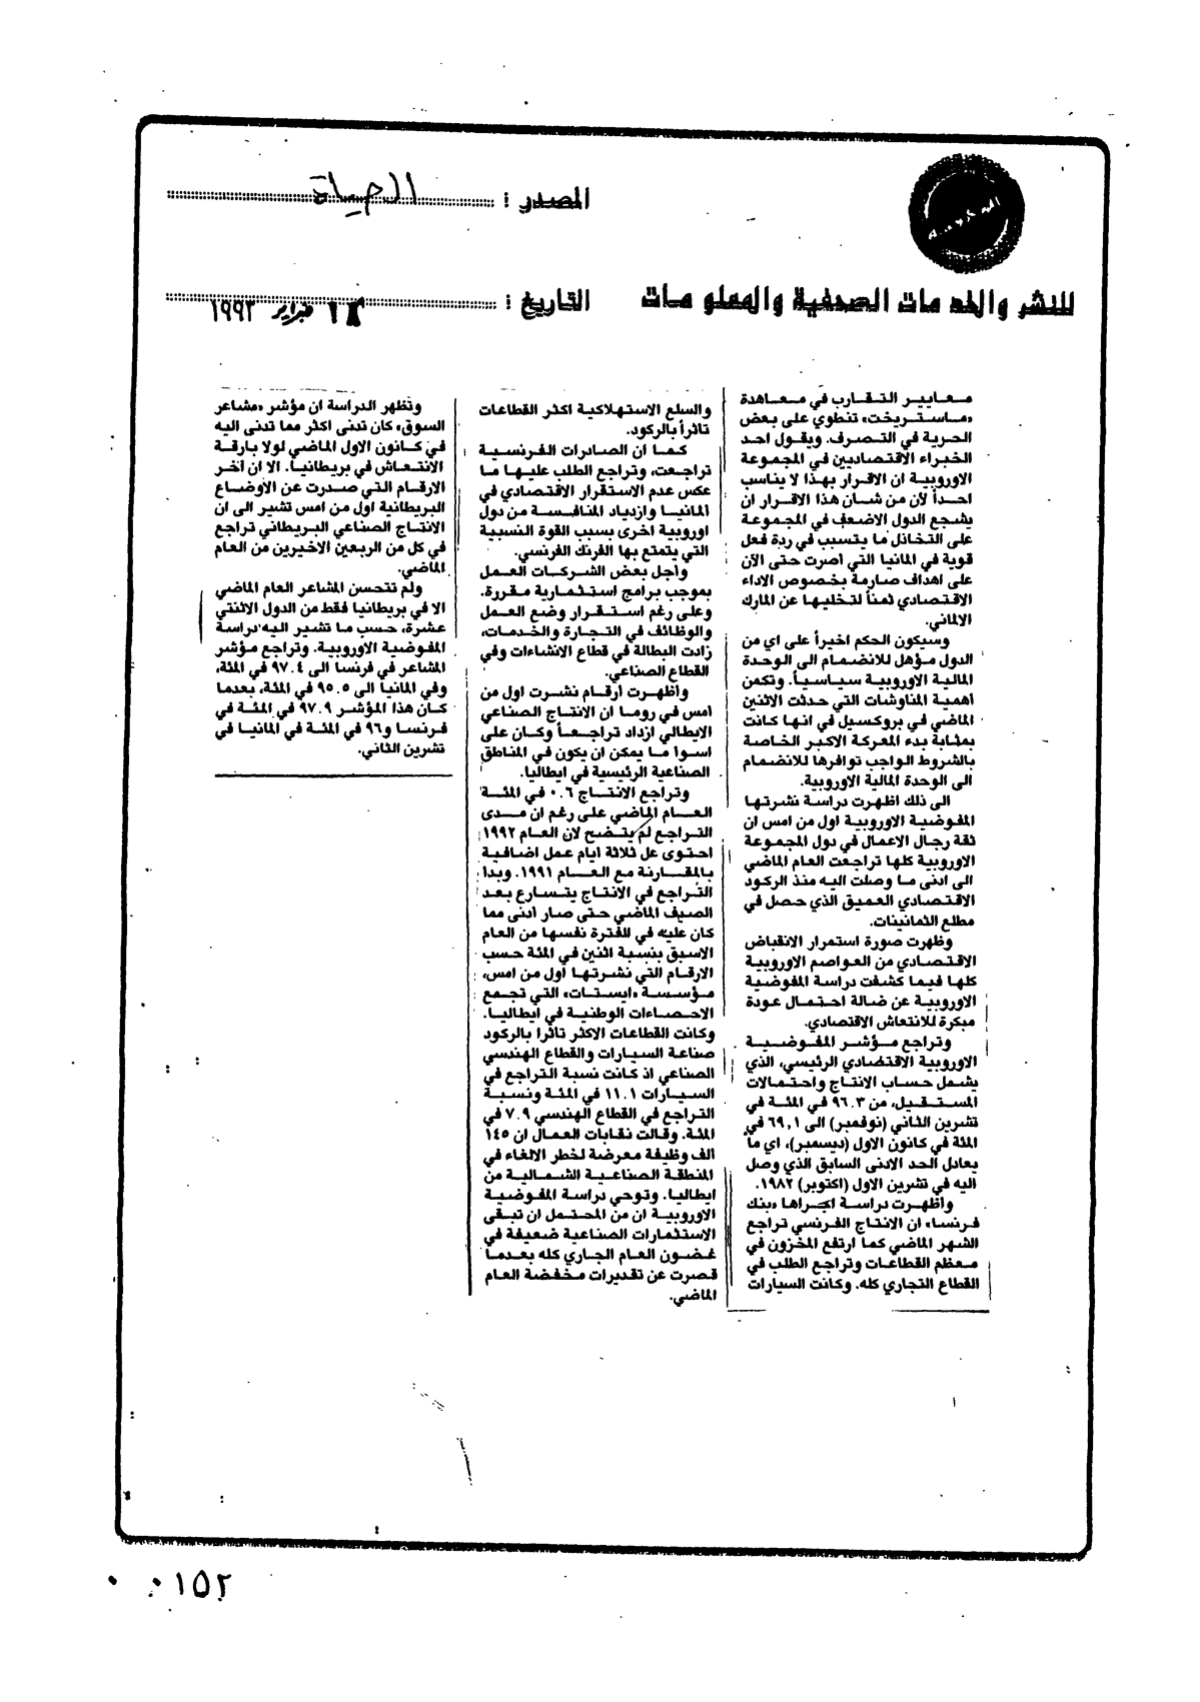 المصدر : الحياة
للنشر والخدمات الصحفية والمعلومات
التاريخ : فبراير ١٩٩٣
معايير التقارب في معاهدة
«ماستريخت» تنطوي على بعض
الحرية في التصرف. ويقول احد
الخبراء الاقتصاديين في المجموعة
الاوروبية ان الاقرار بهذا لا يناسب
احداً لأن من شان هذا الاقرار ان
يشجع الدول الاضعف في المجموعة
على التخاذل ما يتسبب في ردة فعل
قوية في المانيا التي اصرت حتى الآن
على اهداف صارمة بخصوص الاداء
الاقتصادي ثمناً لتخليها عن المارك
الالماني.
وسيكون الحكم اخيراً على اي من
الدول مؤهل للانضمام الى الوحدة
المالية الاوروبية سياسياً. وتكمن
أهمية المناوشات التي حدثت الاثنين
الماضي في بروكسيل في انها كانت
بمثابة بدء المعركة الاكبر الخاصة
بالشروط الواجب توافرها للانضمام
الى الوحدة المالية الاوروبية.
الى ذلك اظهرت دراسة نشرتها
المفوضية الاوروبية اول من امس ان
ثقة رجال الاعمال في دول المجموعة
الاوروبية كلها تراجعت العام الماضي
الى ادنى ما وصلت اليه منذ الركود
الاقتصادي العميق الذي حصل في
مطلع الثمانينات.
وظهرت صورة استمرار الانقباض
الاقتصادي من العواصم الاوروبية
كلها فيما كشفت دراسة المفوضية
الاوروبية عن ضالة احتمال عودة
مبكرة للانتعاش الاقتصادي.
وتراجع مؤشر المفوضية
الاوروبية الاقتصادي الرئيسي، الذي
يشمل حساب الانتاج واحتمالات
المستقبل، من ٩٦.٣ في المئة في
تشرين الثاني (نوفمبر) الى ٦٩,١ في
المئة في كانون الاول (ديسمبر)، اي ما
يعادل الحد الادنى السابق الذي وصل
اليه في تشرين الاول (اكتوبر) ١٩٨٢.
واظهرت دراسة اجراها «بنك
فرنسا» ان الانتاج الفرنسي تراجع
الشهر الماضي كما ارتفع المخزون في
معظم القطاعات وتراجع الطلب في
القطاع التجاري كله. وكانت السيارات
والسلع الاستهلاكية اكثر القطاعات
تاثراً بالركود.
كما ان الصادرات الفرنسية
تراجعت، وتراجع الطلب عليها ما
عكس عدم الاستقرار الاقتصادي في
المانيا وازدياد المنافسة من دول
اوروبية اخرى بسبب القوة النسبية
التي يتمتع بها الفرنك الفرنسي.
واجل بعض الشركات العمل
بموجب برامج استثمارية مقررة.
وعلى رغم استقرار وضع العمل
والوظائف في التجارة والخدمات،
زادت البطالة في قطاع الانشاءات وفي
القطاع الصناعي.
واظهرت أرقام نشرت اول من
امس في روما ان الانتاج الصناعي
الايطالي ازداد تراجعاً وكان على
اسوا ما يمكن ان يكون في المناطق
الصناعية الرئيسية في ايطاليا.
وتراجع الانتاج ٠.٦ في المئة
العام الماضي على رغم ان مدى
التراجع لم يتضح لان العام ١٩٩٢
احتوى عل ثلاثة ايام عمل اضافية
بالمقارنة مع العام ١٩٩١. وبدا
التراجع في الانتاج يتسارع بعد
الصيف الماضي حتى صار ادنى مما
كان عليه في الفترة نفسها من العام
الاسبق بنسبة اثنين في المئة حسب
الارقام التي نشرتها اول من امس،
مؤسسة «ايستات» التي تجمع
الاحصاءات الوطنية في ايطاليا.
وكانت القطاعات الاكثر تاثرا بالركود
صناعة السيارات والقطاع الهندسي
الصناعي اذ كانت نسبة التراجع في
السيارات ١١.١ في المئة ونسبة
التراجع في القطاع الهندسي ٧.٩ في
المئة. وقالت نقابات العمال ان ١٤٥
الف وظيفة معرضة لخطر الالغاء في
المنطقة الصناعية الشمالية من
ايطاليا. وتوحي دراسة المفوضية
الاوروبية ان من المحتمل ان تبقى
الاستثمارات الصناعية ضعيفة في
غضون العام الجاري كله بعدما
قصرت عن تقديرات مخفضة العام
الماضي.
وتظهر الدراسة ان مؤشر «مشاعر
السوق» كان تدنى اكثر مما تدنى اليه
في كانون الاول الماضي لولا بارقة
الانتعاش في بريطانيا. الا ان آخر
الارقام التي صدرت عن الأوضاع
البريطانية اول من امس تشير الى ان
الانتاج الصناعي البريطاني تراجع
في كل من الربعين الاخيرين من العام
الماضي.
ولم تتحسن المشاعر العام الماضي
الا في بريطانيا فقط من الدول الاثنتي
عشرة، حسب ما تشير اليه دراسة
المفوضية الاوروبية. وتراجع مؤشر
المشاعر في فرنسا الى ٩٧.٤ في المئة،
وفي المانيا الى ٩٥.٥ في المئة، بعدما
كان هذا المؤشر ٩٧.٩ في المئة في
فرنسا و٩٦ في المئة في المانيا في
تشرين الثاني.
٠٠١٥٢